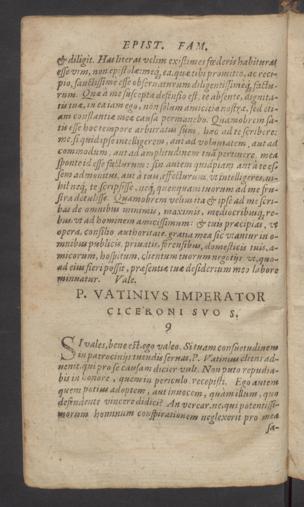 EPIST. FAM.
& diligit. Has literas velim existimes fœderis habituras
esse vim, non epistolæ: meq; ea, quæ tibi promitto, ac reci-
pio, sanctissimè esse obseruaturum diligentissimeq; factu-
rum. Quæ à me suscepta defensio est, te absente, dignita-
tis tuæ, in ea iam ego, non solùm amicitia nostra, sed eti-
am constantia mea causa permanebo. Quamobrem sa-
tis esse hoc tempore arbitratus sum, hæc ad te scribere:
me, si quid ipse intelligerem, aut ad voluntatem, aut ad
commodum, aut ad amplitudinem tuã pertinere, mea
sponte id esse facturum: sin autem quidpiam aut à te es-
sem admonitus, aut à tuis, effecturum, vt intelligeres, ni-
hil neq; te scripsisse, neq; quenquam tuorum ad me fru-
stra detulisse. Quamobrem velim ita & ipse ad me scri-
bas de omnibus minimis, maximis, mediocribus q, re-
bus, vt ad hominem amicissimum: & tuis præcipias, vt
opera, consilio authoritate, gratia mea sic vtantur in o-
mnibus publicis, priuatis, forensibus, domesticis tuis, a-
micorum, hospitum, clientum tuorum negotijs: vt, quo-
ad eius fieri possit, præsentiæ tuæ desiderium meo labore
minuatur. Vale.
P. VATINIVS IMPERATOR
CICERONI SVO S.
9
SI vales, bene est: ego valeo. Si tuam consuetudinem
in patrocinijs tuendis seruas, P. Vatinius cliens ad-
uenit, qui pro se causam dicier vult. Non puto repudia-
bis in honore, quem in periculo recepisti. Ego autem
quem potius adoptem, aut inuocem, quàm illum, quo
defendente vincere didici? An verear, ne qui potentissi-
morum hominum conspirationem neglexerit pro mea
sa-